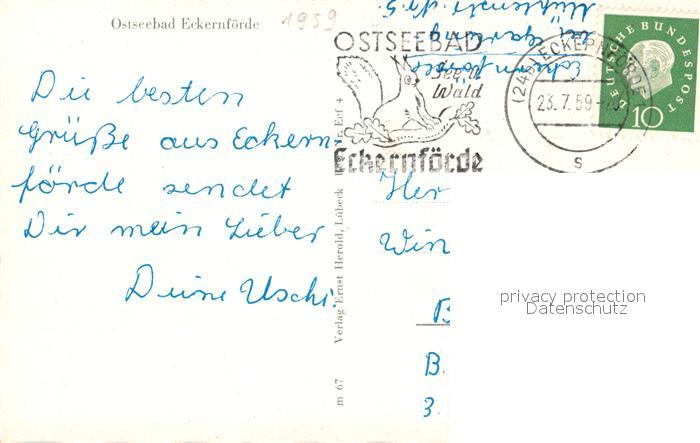 Ostseebad Eckernförde
1959
Die besten
Grüße aus Eckern-
förde sendet
Dir mein Lieber
Deine Uschi.
m 67 Verlag Ernst Herold, Lübeck
OSTSEEBAD
See u.
Wald
Eckernförde
(24b) ECKERNFÖRDE
23.7.59
s
DEUTSCHE BUNDESPOST
10
Eckernförde
Her
Win
B
B.
3.
privacy protection
Datenschutz